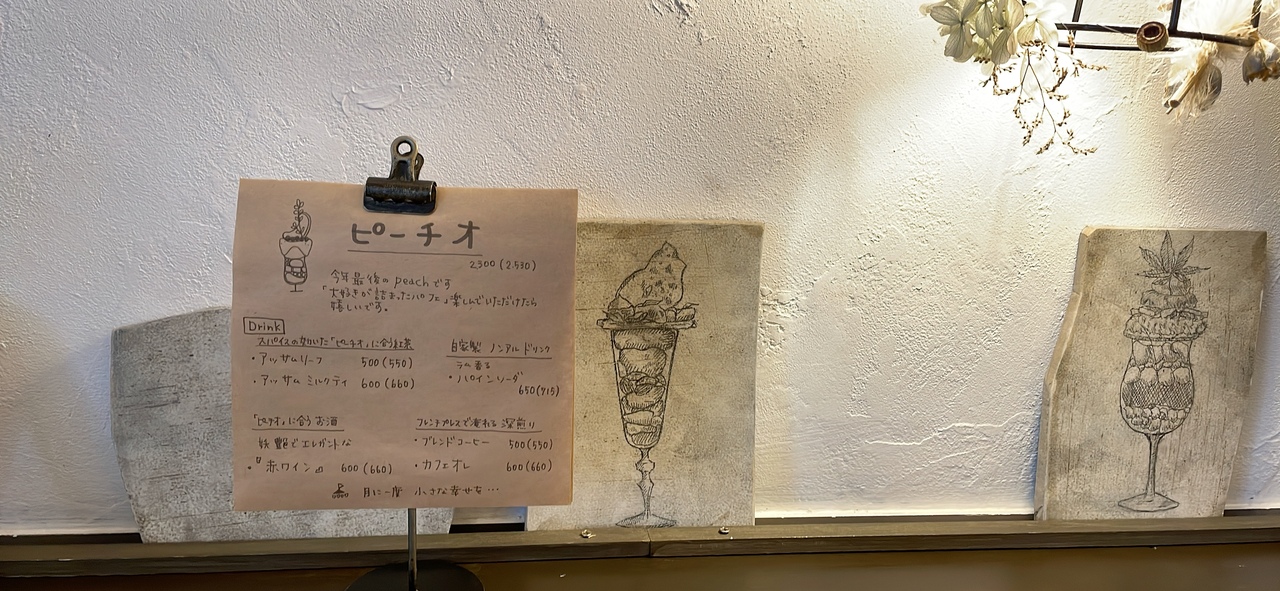 ピーチオ
2300(2.530)
今年最後の peachです
「大好きが詰まったパフェ」楽しんでいただけたら
嬉しいです。
Drink
スパイスの効いた「ピーチオ」に合う紅茶
・アッサムリーフ 500(550)
・アッサム ミルクティ 600(660)
自家製 ノンアルドリンク
ラム香る
・パインソーダ
650(715)
「ピーチオ」に合うお酒
妖艶でエレガントな
・『赤ワイン』 600(660)
フレンチプレスで淹れる 深煎り
・ブレンドコーヒー 500(550)
・カフェオレ 600(660)
月に一度 小さな幸せを…